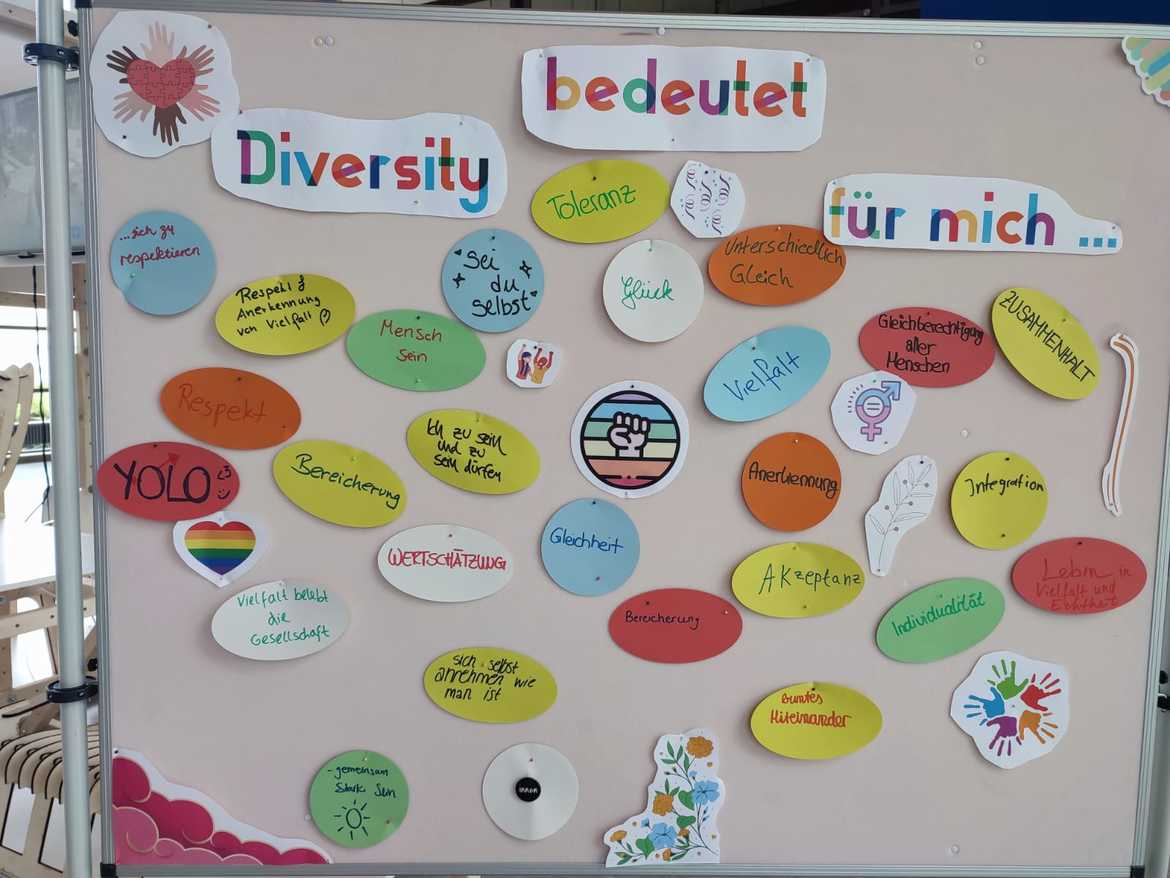 Diversity
bedeutet
für mich ...
Toleranz
...sich zu
respektieren
Sei
du
selbst
Unterschiedlich
Gleich
Glück
Respekt &
Anerkennung
von Vielfalt
Mensch
sein
Gleichberechtigung
aller
Menschen
ZUSAMMENHALT
Vielfalt
Respekt
Ich zu sein
und zu
sein dürfen
YOLO
Bereicherung
Anerkennung
Integration
WERTSCHÄTZUNG
Gleichheit
Akzeptanz
Leben in
Vielfalt und
Echtheit
Vielfalt belebt
die
Gesellschaft
Bereicherung
Individualität
sich selbst
annehmen wie
man ist
Buntes
Miteinander
- gemeinsam
Stark Sein